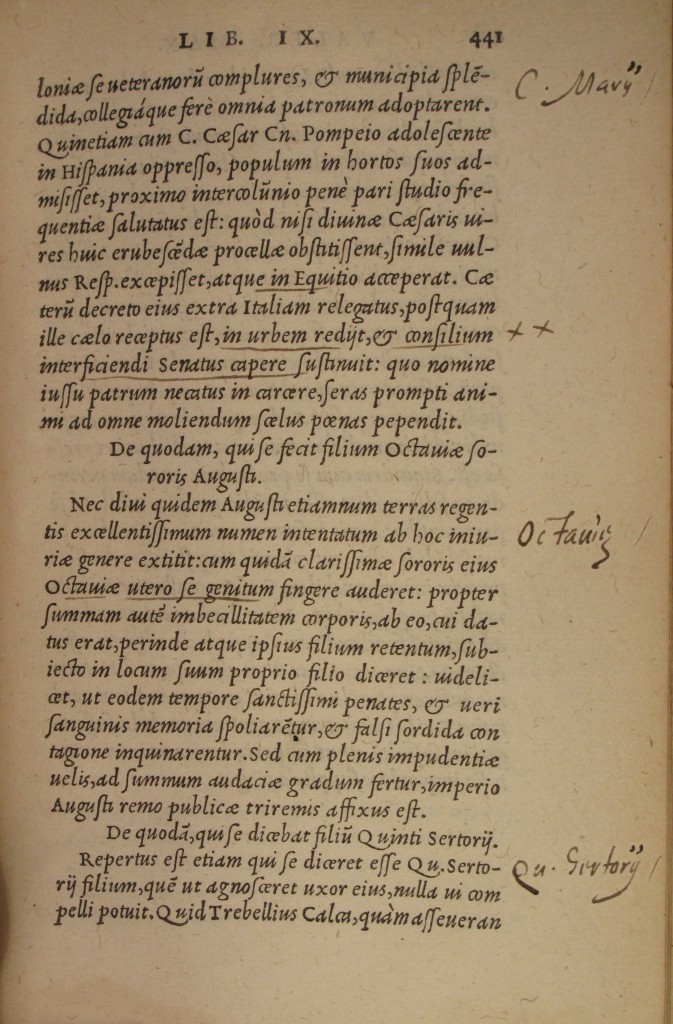 LIB. IX. 441
loniæ se ueteranorũ complures, & municipia splẽ-
dida, collegiáque ferè omnia patronum adoptarent.
Quinetiam cum C. Cæsar Cn. Pompeio adolescente
in Hispania oppresso, populum in hortos suos ad-
misisset, proximo intercolũnio penè pari studio fre-
quentiæ salutatus est: quòd nisi diuinæ Cæsaris ui-
res huic erubescẽdæ procellæ obstitissent, simile uul-
nus Resp. excepisset, atque in Equitio acceperat. Cæ
terũ decreto eius extra Italiam relegatus, postquam
ille cælo receptus est, in urbem redijt, & consilium
interficiendi Senatus capere sustinuit: quo nomine
iussu patrum necatus in carcere, seras prompti ani-
mi ad omne moliendum scelus pœnas pependit.
De quodam, qui se fecit filium Octauiæ so-
roris Augusti.
Nec diui quidem Augusti etiamnum terras regen-
tis excellentissimum numen intentatum ab hoc iniu-
riæ genere extitit: cum quidã clarissimæ sororis eius
Octauiæ utero se genitum fingere auderet: propter
summam autẽ imbecillitatem corporis, ab eo, cui da-
tus erat, perinde atque ipsius filium retentum, sub-
iecto in locum suum proprio filio diceret: uideli-
cet, ut eodem tempore sanctissimi penates, & ueri
sanguinis memoria spoliarẽtur, & falsi sordida con
tagione inquinarentur. Sed cum plenis impudentiæ
uelis, ad summum audaciæ gradum fertur, imperio
Augusti remo publicæ triremis affixus est.
De quodã, qui se dicebat filiũ Quinti Sertorij.
Repertus est etiam qui se diceret esse Qu. Serto-
rij filium, quẽ ut agnosceret uxor eius, nulla ui com
pelli potuit. Quid Trebellius Calca, quàm asseueran
C. Marij
++
Octauiæ
Qu. Sertorij